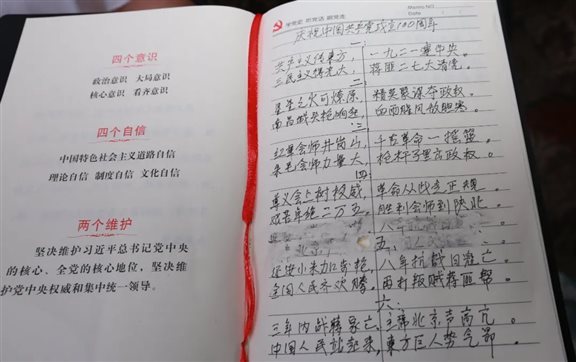 四个意识
政治意识 大局意识
核心意识 看齐意识
四个自信
中国特色社会主义道路自信
理论自信 制度自信 文化自信
两个维护
坚决维护习近平总书记党中央
的核心、全党的核心地位，坚决维
护党中央权威和集中统一领导。
学党史 听党话 跟党走
Memo NO.
Date
庆祝中国共产党成立100周年
一、
共产主义传东方， 一九二一
三民主义 大， 蒋匪二七大清党。
二、
星星之火可燎原， 精英聚谋夺政权。
南昌城头枪响起， 血雨腥风放胆寒。
三、
红军会师井岗山， 千古革命一摇篮。
朱毛会师力量大， 枪杆子里言政权。
四、
尊义会上树权威， 革命从此走正规。
二万五， 胜利会师到陕北。
五、
延安小米加步枪， 八年抗战日寇亡。
全国人民齐欢腾。 贼蒋匪帮。
六、
三年内战蒋家亡， 主席北京声高亢。
中国人民站起来， 东方巨人势气昂。